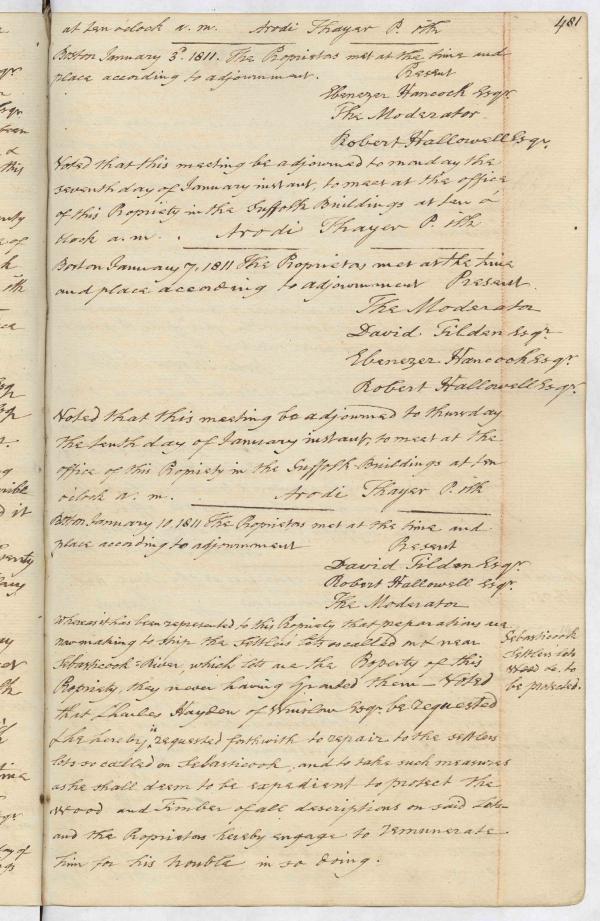 481
at ten oclock a. m. Arodi Thayer P. Clk
Boston January 3d. 1811. The Proprietors met at the time and
place according to adjournment. Present
Ebenezer Hancock Esqr.
The Moderator
Robert Hallowell Esqr.
Voted that this meeting be adjourned to monday the
seventh day of January instant, to meet at the office
of this Propriety in the Suffolk Buildings at ten o'
clock a. m. Arodi Thayer P. Clk
Boston January 7, 1811 The Proprietors met at the time
and place according to adjournment Present
The Moderator
David Tilden Esqr.
Ebenezer Hancock Esqr.
Robert Hallowell Esqr.
Voted that this meeting be adjourned to thursday
the tenth day of January instant, to meet at the
office of this Propriety in the Suffolk Buildings at ten
o'clock a. m. Arodi Thayer P. Clk
Boston January 10. 1811 The Proprietors met at the time and
place according to adjournment Present
David Tilden Esqr.
Robert Hallowell Esqr.
The Moderator
Whereas it has been represented to this Propriety that preparations are
now making to strip the Settlers Lots so called on & near
Sebasticook River, which lots are the Property of this
Propriety, they never having Granted them – Voted
that Charles Hayden of Winslow Esqr. be requested
& he hereby is requested forthwith to repair to the settlers
lots so called on Sebasticook, and to take such measures
as he shall deem to be expedient to protect the
Wood and Timber of all descriptions on said Lots
and the Proprietors hereby engage to remunerate
him for his trouble in so doing.
Sebasticook
Settlers Lots
Wood &c. to
be protected.